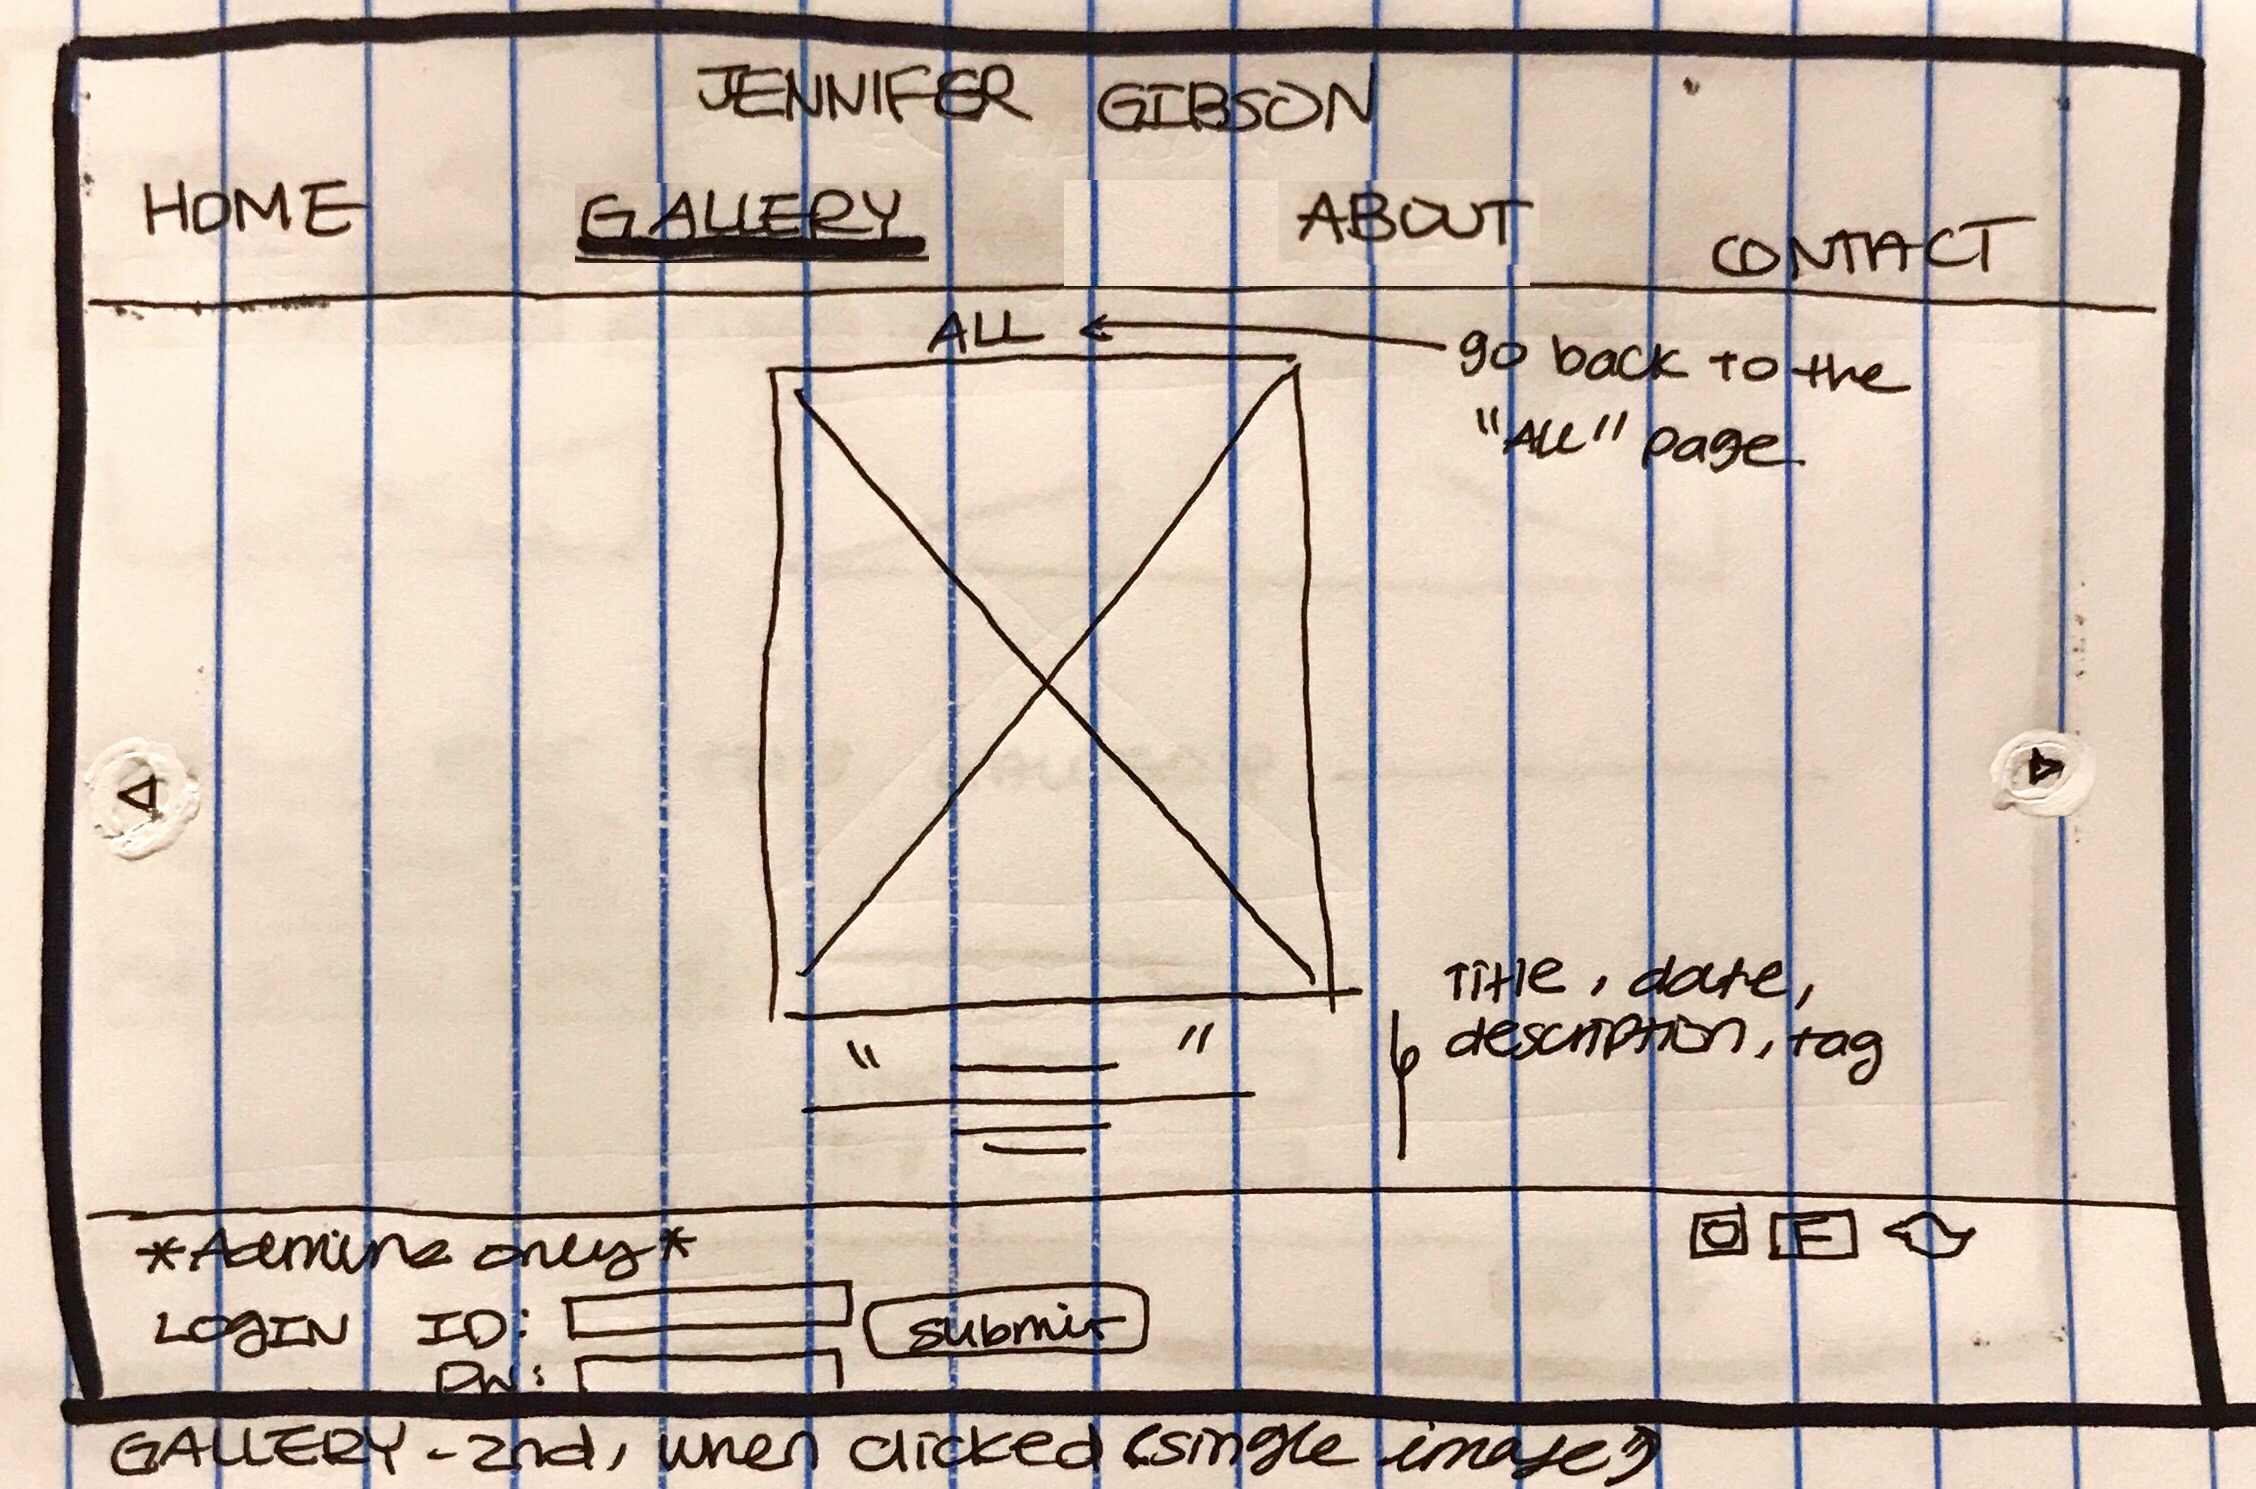 JENNIFER GIBSON
HOME GALLERY ABOUT CONTACT
ALL
go back to the
"ALL" page.
Title, date,
description, tag
" "
*Admins only*
F
LOGIN ID: submit
PW:
GALLERY - 2nd, when clicked (single image)